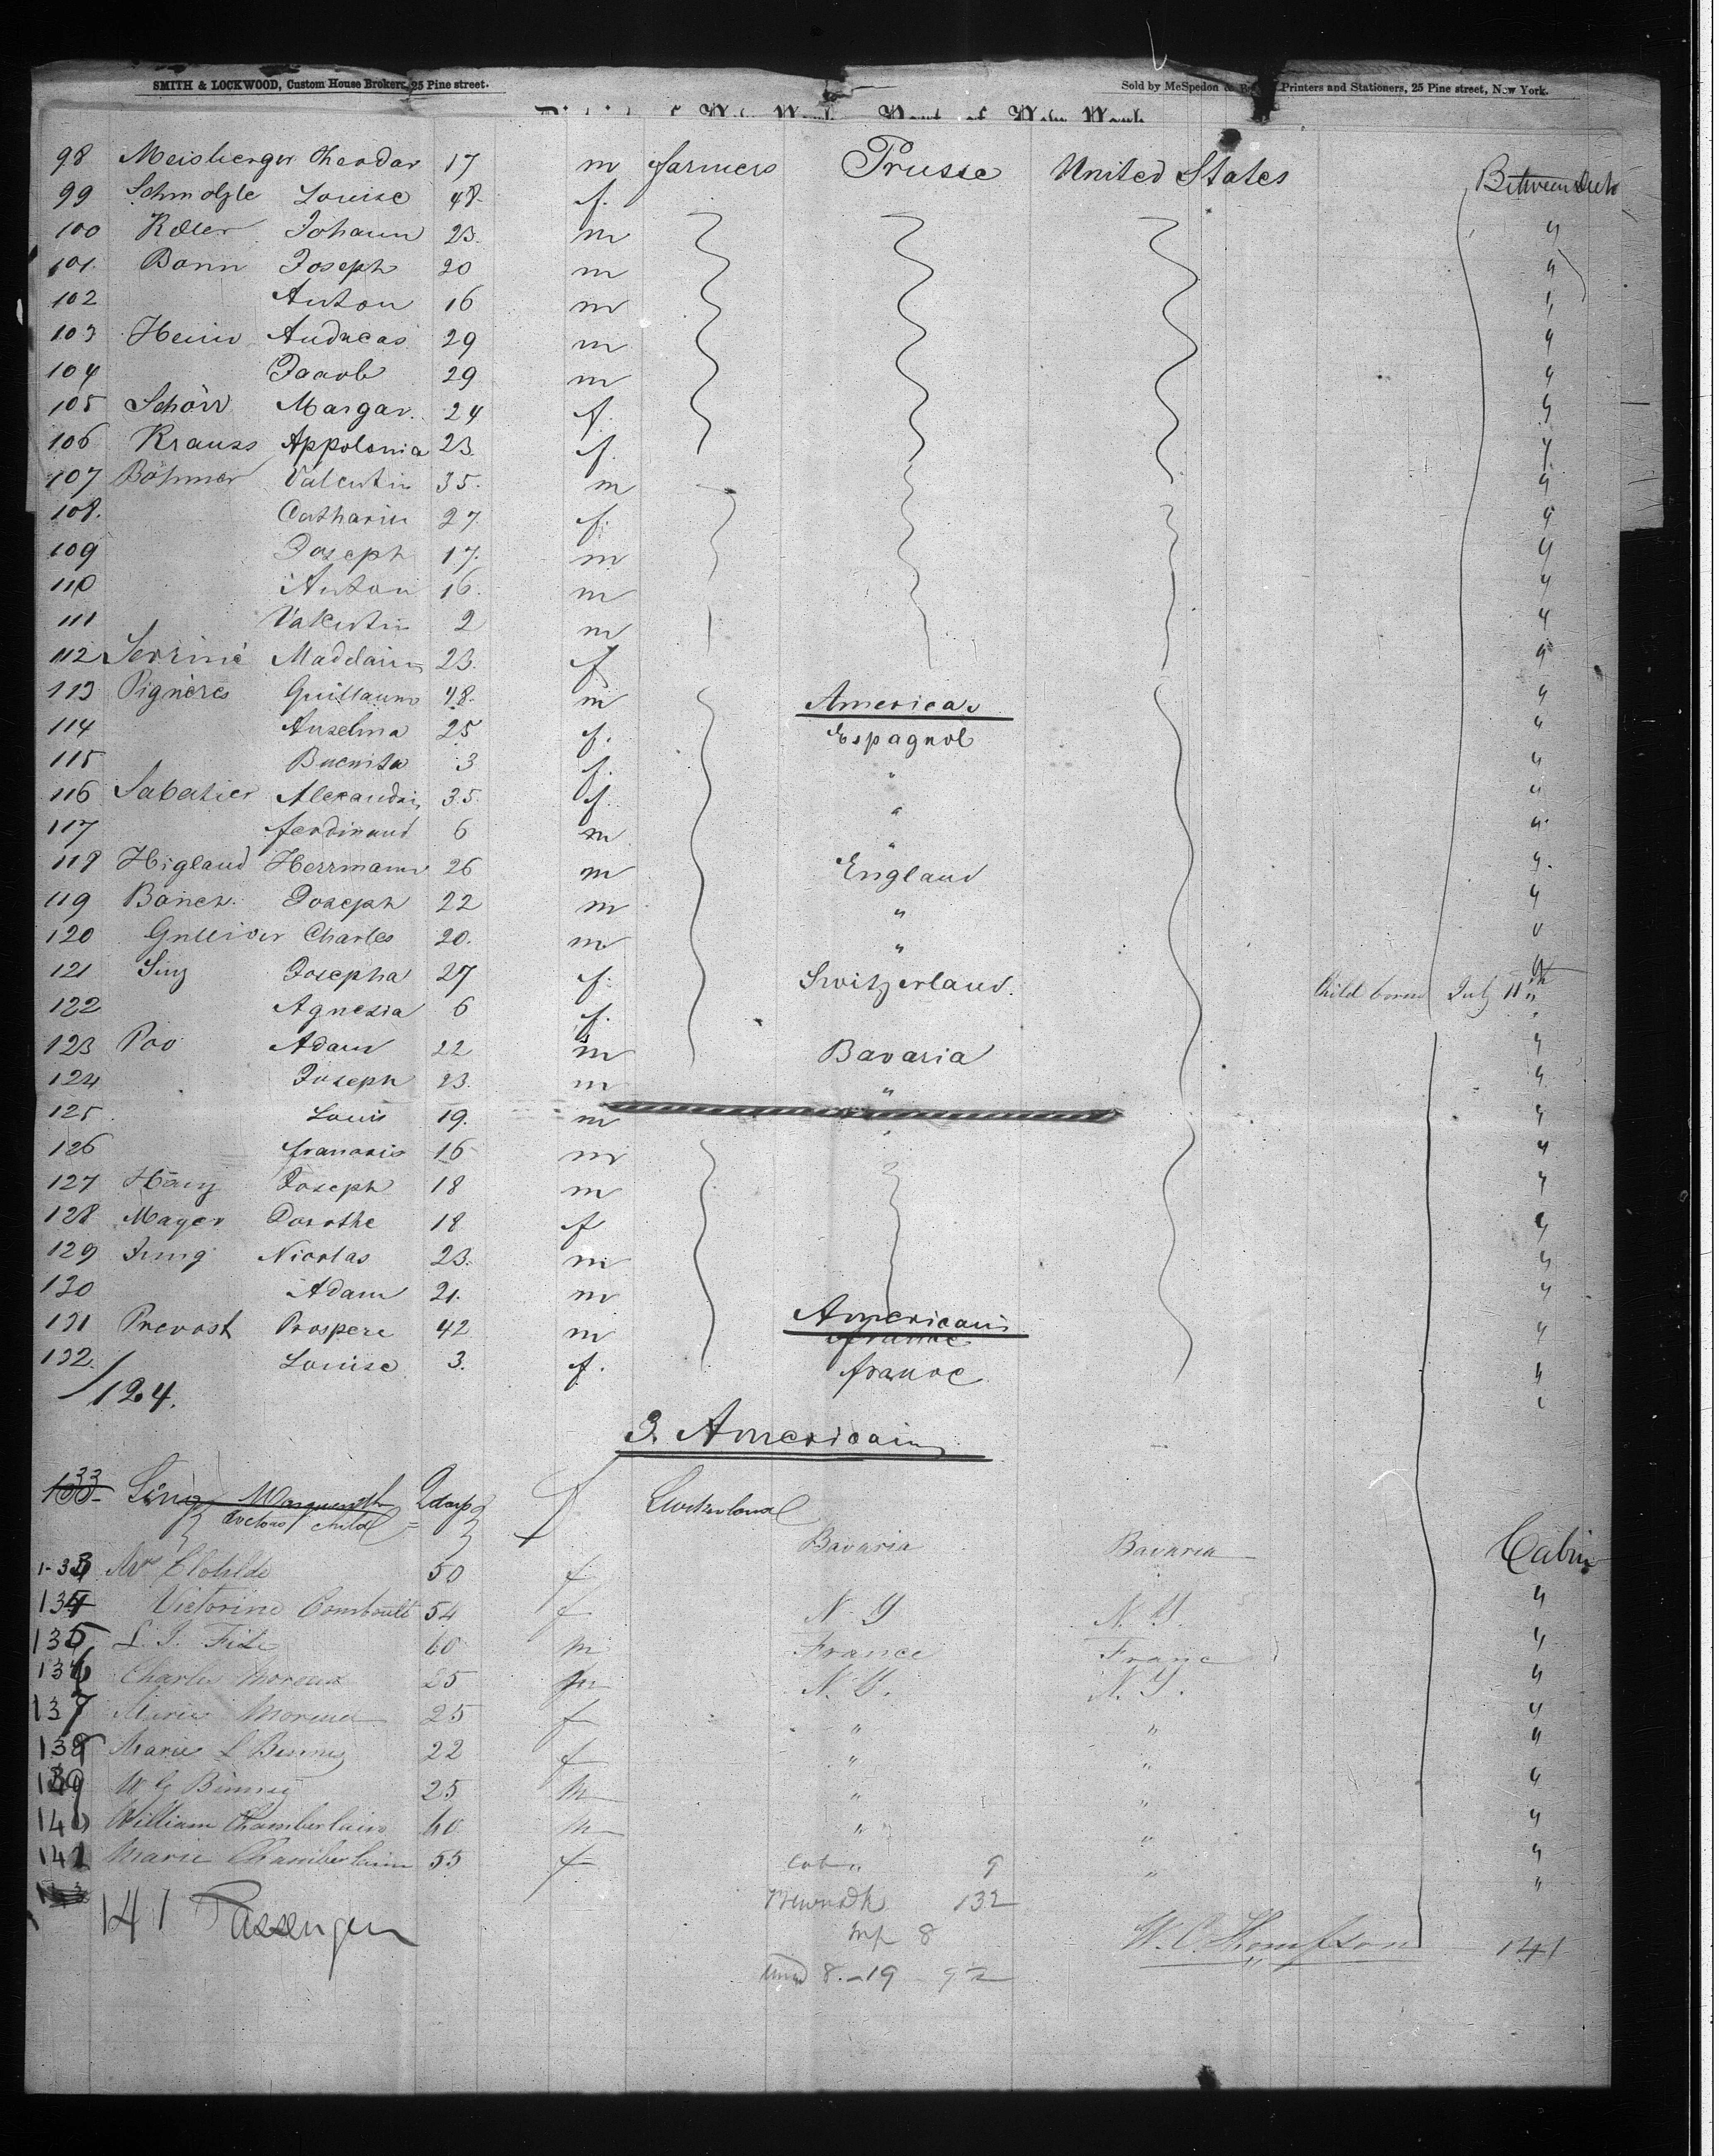 SMITH & LOCKWOOD, Custom House Brokers, 25 Pine street. Sold by McSpedon & Printers and Stationers, 25 Pine street, New York.
98 Meisberger Theodor 17 m farmers Prusse United States Between Deck
99 Schmolzle Louise 48 f.
100 Keller Johann 23. m "
101. Bonn Joseph 20 m "
102 Anton 16 m "
103 Hein Andreas 29 m "
104 Jacob 29 m "
105 Schörr Margar. 24 f. "
106 Krauss Appolonia 23. f. "
107 Böhmer Valentin 35. m "
108. Catharin 27. f. "
109 Joseph 17. m "
110 Anton 16. m "
111 Valentin 2 m "
112 Serriné Madelain 23. f "
113 Pignères Guillaume 48. m America "
114 Anselma 25 f. Espagnol "
115 Buenita 3 f. " "
116 Sabatier Alexandri 35. f. " "
117 ferdinand 6 m " "
118 Higland Herrmann 26 m England "
119 Banch. Joseph 22 m " "
120 Gulliver Charles 20. m " "
121 Sing Josepha 27 f. Switzerland. Child born July 11th
122 Agnesia 6 f. "
123 Poo Adam 22 m Bavaria "
124 Joseph 23. m " "
125. Louis 19. m "
126 francois 16 m "
127 Hany Joseph 18 m "
128 Mayer Dorothe 18 f "
129 Jung Nicolas 23. m "
130 Adam 21. m "
131 Prevost Prospere 42 m Americain france "
132. Louise 3. f. france "
124.
3. Americain
133 Sing 2 days f Switzerland
doctors child
Bavaria Bavaria Cabin
133 Mrs Clotilde 50 f
134 Victorine Comboult 54 f N.Y. N.Y. "
135 L. J. 60 m France Franc "
136 Charles Moreau 25 m N.Y. N.Y. "
137 Marie Moreau 25 f " " "
138 Marie L Binney 22 f " " "
139 W G Binney 25 m " " "
140 William Chamberlain 60 m " " "
141 Marie Chamberlain 55 f Cab " 9 " "
132
141 Passenger 8 W. C. Thompson 141
8.-19 92